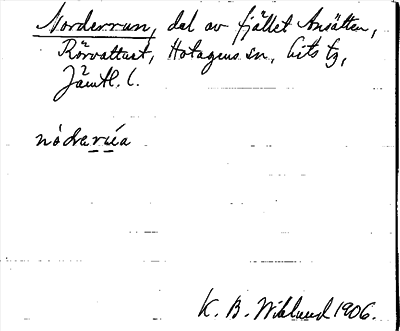 Norderrun, del av fjället Ansätten,
Rörvattnet, Hotagens sn, Lits tg,
Jämtl. l.
nòdeɍɍiéa
K. B. Wiklund 1906.